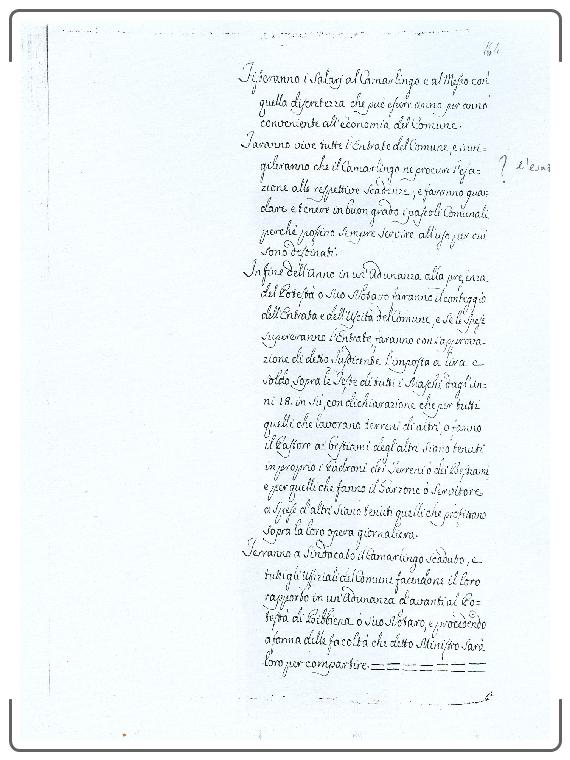 164
Tisseranno i Salarj al Camarlingo e al Messo con
quella discretezza che può essere anno per anno
conveniente all'economia del Comune.
Faranno vive tutte l'Entrate del Comune, e invi-
gileranno che il Camarlingo ne procuri l'esa-
? l'esa
zione alle respettive Scadenze, e faranno guar-
dare e tenere in buon grado i pascoli Comunali
perchè possino sempre servire all'uso per cui
sono destinati.
In fine dell'Anno in un'Adunanza alla presenza
del Potestà o suo Notaro faranno il conteggio
dell'Entrata e dell'Uscita del Comune, e se le Spese
supereranno l'Entrate faranno con l'approva-
zione di detto Jusdicente l'imposta a lira e
soldo sopra le Teste di tutti i Maschi dagl'an-
ni 18. in sù, con dichiarazione che per tutti
quelli che lavorano terreni di altri, o fanno
il Pastore ai bestiami degl'altri siano tenuti
in proprio i Padroni dei Terreni o dei Bestiami
e per quelli che fanno il Garzone o Servitore
a spese d'altri siano tenuti quelli che profittano
sopra la loro opera giornaliera.
Terranno a Sindacato il Camarlingo scaduto, e
tutti gli Ufiziali del Comune facendone il loro
rapporto in un'Adunanza d'avanti al Po-
testà di Bibbiena o suo Notaro, e procedendo
a forma delle facoltà che detto Ministro sarà
loro per compartire.